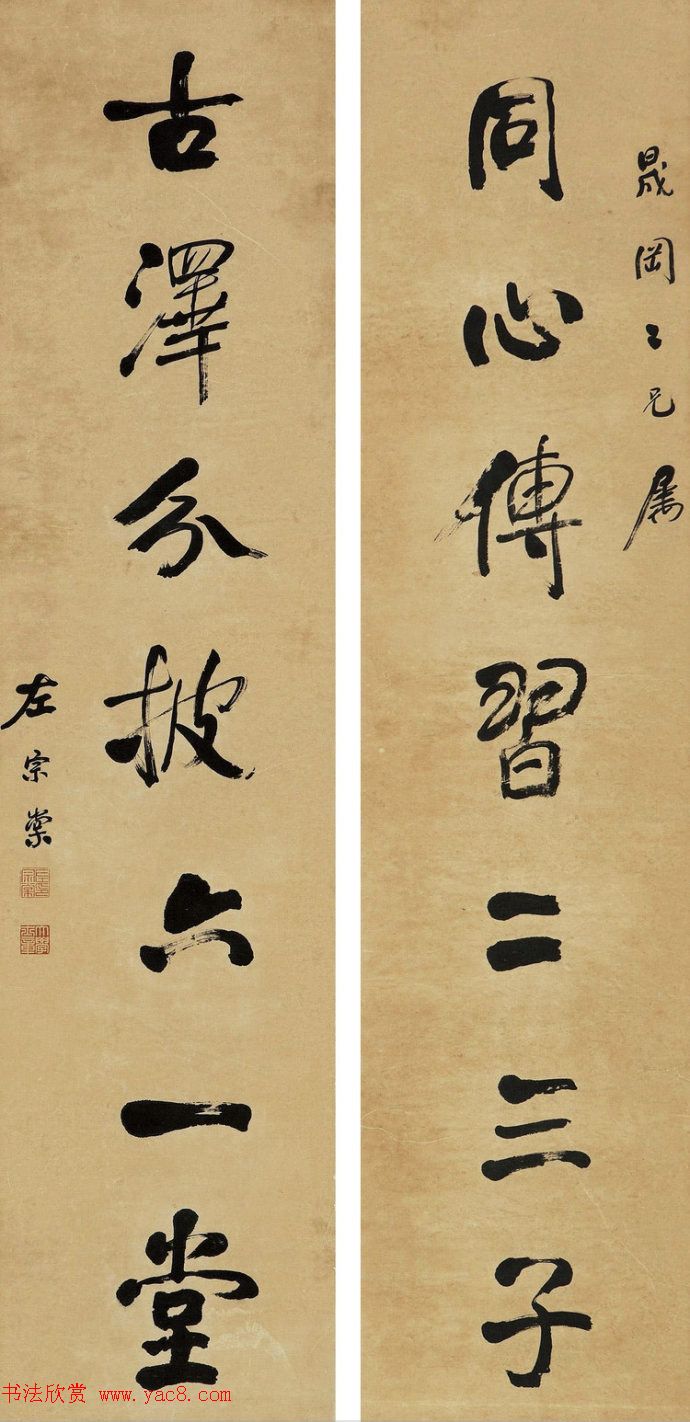 晟岡二兄属
同心傳習二三子
古澤分披六一堂
左宗棠
书法欣赏 www.yac8.com